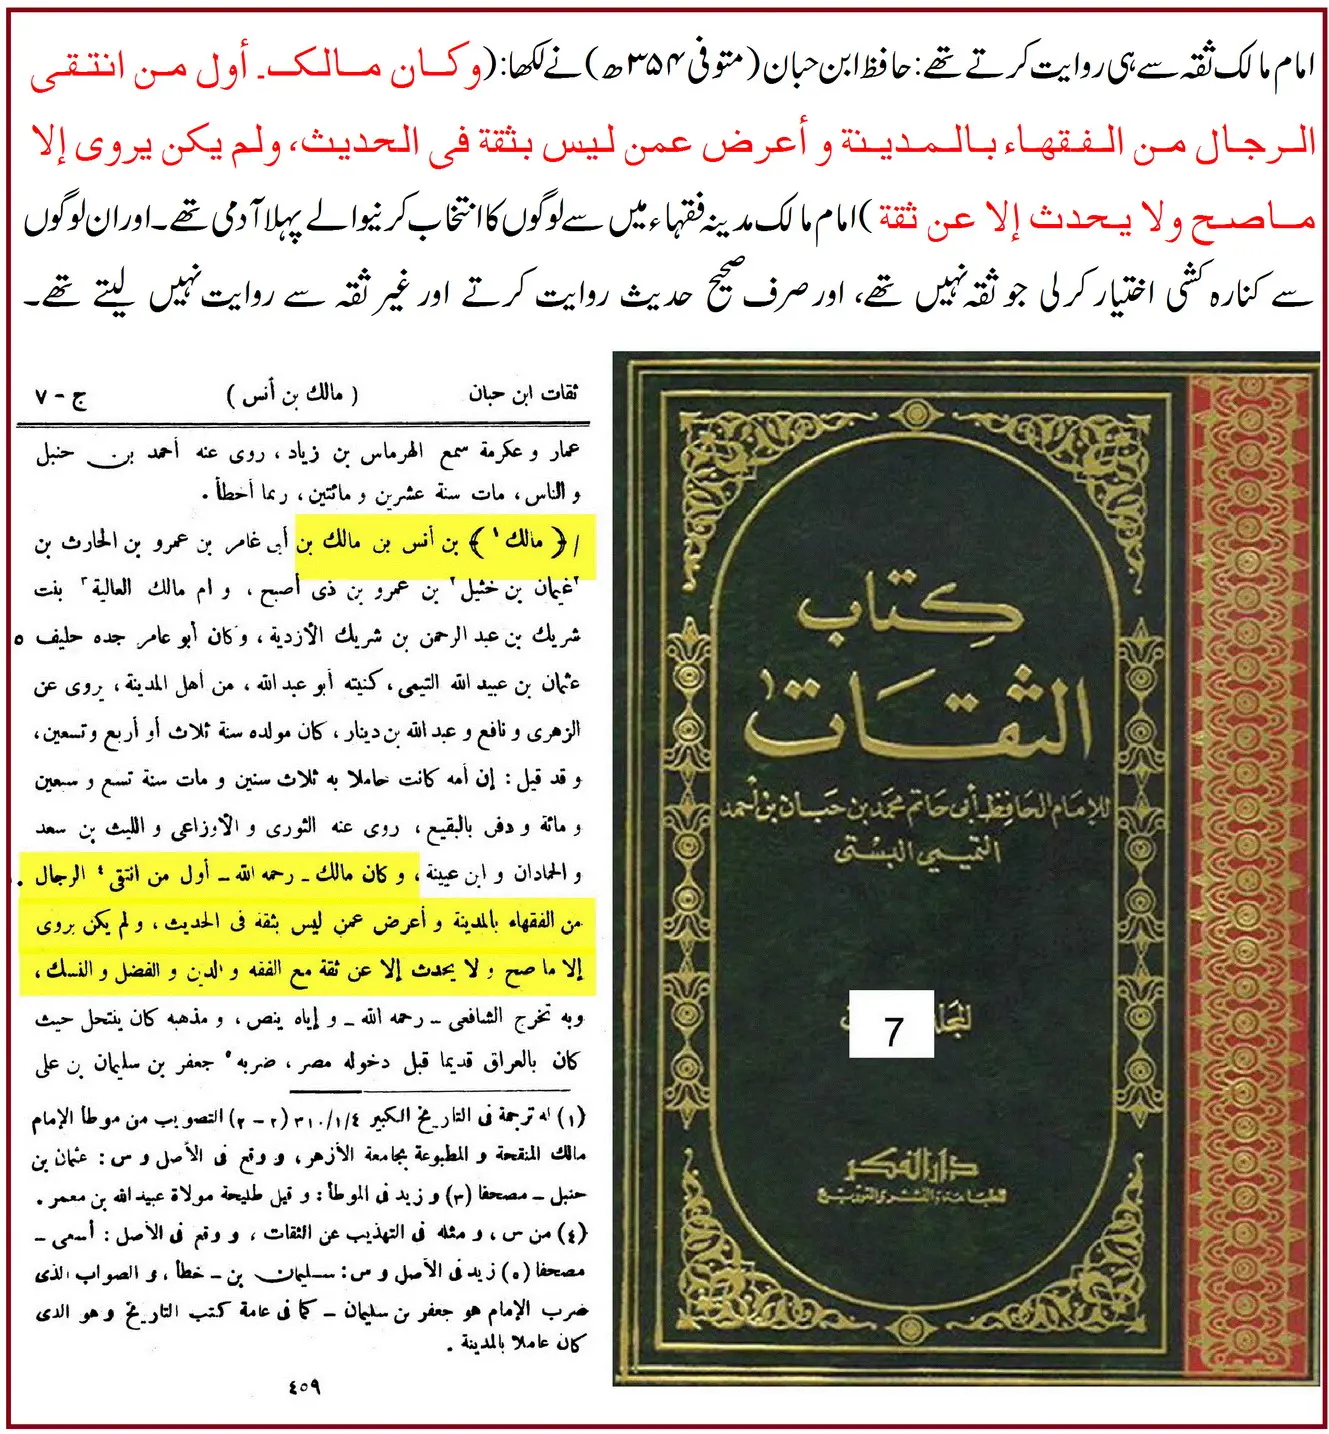 امام مالک ثقہ سے ہی روایت کرتے تھے: حافظ ابن حبان (متوفی ۳۵۴ھ) نے لکھا: (وكان مالك۔ أول من انتقى
الرجال من الفقهاء بالمدينة و أعرض عمن ليس بثقة فى الحديث، ولم يكن يروى إلا
ماصح ولا يحدث إلا عن ثقة) امام مالک مدینہ فقہاء میں سے لوگوں کا انتخاب کرنیوالے پہلا آدمی تھے۔ اور ان لوگوں
سے کنارہ کشی اختیار کرلی جو ثقہ نہیں تھے، اور صرف صحیح حدیث روایت کرتے اور غیر ثقہ سے روایت نہیں لیتے تھے۔
ثقات ابن حبان ( مالك بن أنس ) ج - ٧
عمار و عكرمة سمع الهرماس بن زياد ، روى عنه أحمد بن حنبل
و الناس ، مات سنة عشرين و مائتين ، ربما أخطأ .
/ ﴿ مالك ١ ﴾ بن أنس بن مالك بن أبى غامر بن عمرو بن الحارث بن
٢غيمان بن خثيل٢ بن عمرو بن ذى أصبح ، و ام مالك العالية ٣ بنت
شريك بن عبد الرحمن بن شريك الأزدية ، وكان أبو عامر جده حليف ٥
عثمان بن عبيد الله التيمى ، كنيته أبو عبد الله ، من أهل المدينة ، يروى عن
الزهرى و نافع و عبد الله بن دينار ، كان مولده سنة ثلاث أو أربع و تسعين ،
و قد قيل : إن أمه كانت حاملا به ثلاث سنين و مات سنة تسع و سبعين
و مائة و دفن بالبقيع ، روى عنه الثورى و الأوزاعى و الليث بن سعد
و الحمادان و ابن عيينة ، و كان مالك ـ رحمه الله ـ أول من انتقى ٤ الرجال
من الفقهاء بالمدينة و أعرض عمن ليس بثقة فى الحديث ، و لم يكن يروى
إلا ما صح و لا يحدث إلا عن ثقة مع الفقه و الدين و الفضل و النسك ،
وبه تخرج الشافعى ـ رحمه الله ـ و إياه ينص ، و مذهبه كان ينتحل حيث
كان بالعراق قديما قبل دخوله مصر ، ضربه ٥ جعفر بن سليمان بن على
(١) له ترجمة فى التاريخ الكبير ٣١٠/١/٤ (٢ - ٢) التصويب من موطأ الإمام
مالك المنقحة و المطبوعة بجامعة الأزهر ، و وقع فى الأصل و س : عثمان بن
حنبل ـ مصحفا (٣) و زيد فى الموطأ : و قيل طليحة مولاة عبيد الله بن معمر .
(٤) من س ، و مثله فى التهذيب عن الثقات ، و وقع فى الأصل : أسعى ـ
مصحفا (٥) زيد فى الأصل و س : سليمان بن ـ خطأ ، و الصواب الذى
ضرب الإمام هو جعفر بن سليمان ـ كما فى عامة كتب التاريخ و هو الذى
كان عاملا بالمدينة .
٤٥٩
كتاب
الثقات
للإمام الحافظ أبى حاتم محمد بن حبان بن أحمد
التميمي البستى
7
دار الفكر
للطباعة والنشر والتوزيع